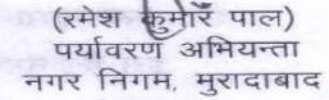 (रमेश कुमार पाल)
पर्यावरण अभियन्ता
नगर निगम, मुरादाबाद